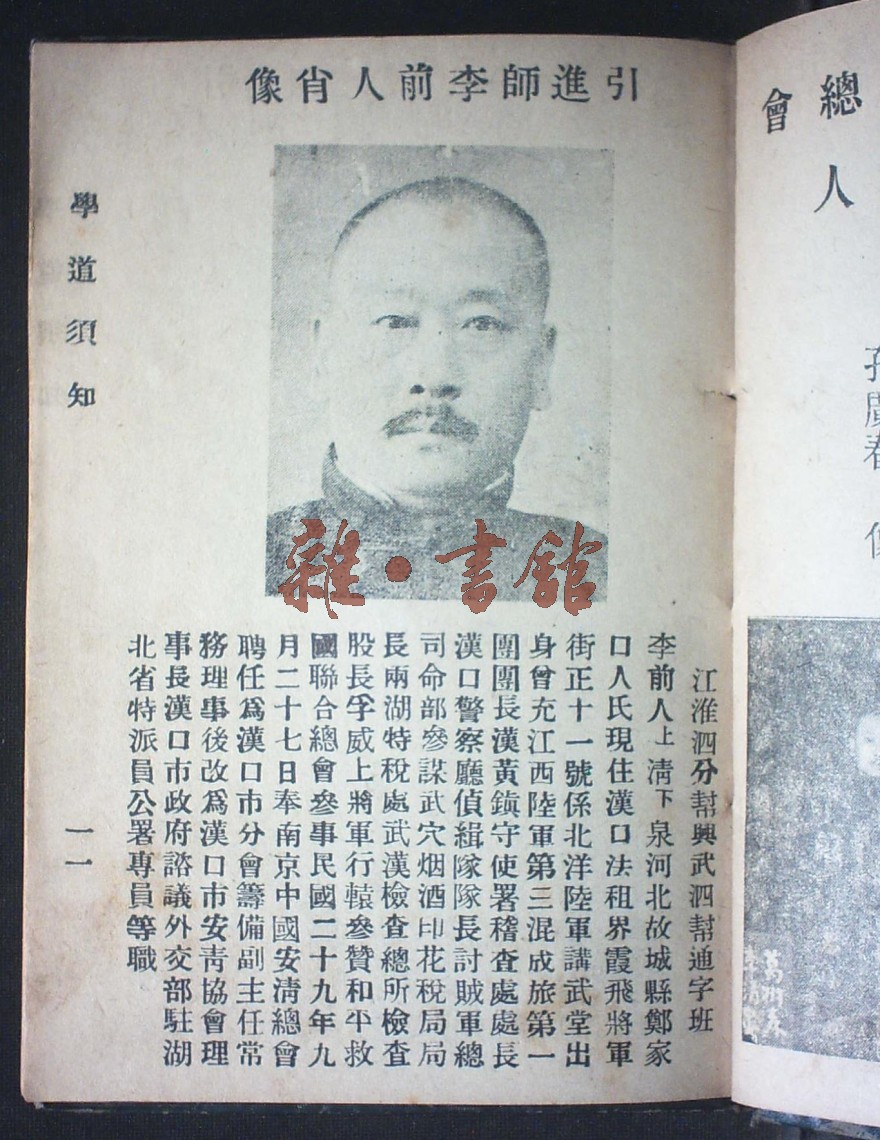 引進師李前人肖像
學道須知
雜·書館
江淮泗分幫興武泗幫通字班
李前人上清下泉河北故城縣鄭家
口人氏現住漢口法租界霞飛將軍
街正十一號係北洋陸軍講武堂出
身曾充江西陸軍第三混成旅第一
團團長漢黃鎮守使署稽查處處長
漢口警察廳偵緝隊隊長討賊軍總
司命部參謀武穴烟酒印花稅局局
長兩湖特稅處武漢檢查總所檢查
股長孚威上將軍行轅參贊和平救
國聯合總會參事民國二十九年九
月二十七日奉南京中國安清總會
聘任爲漢口市分會籌備副主任常
務理事後改爲漢口市安青協會理
事長漢口市政府諮議外交部駐湖
北省特派員公署專員等職
一一
總
會
人
廣春